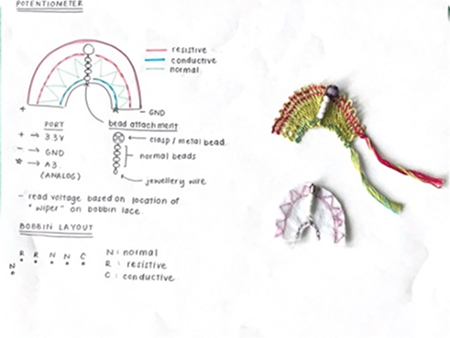 POTENTIOMETER
resistive
conductive
normal
+
- GND
bead attachment
PORT
+ → 3.3V
- → GND
* → A3
(ANALOG)
clasp / metal bead
normal beads
jewellery wire
- read voltage based on location of
"wiper" on bobbin lace.
BOBBIN LAYOUT
N R R N N C
N: normal
R: resistive
C: conductive